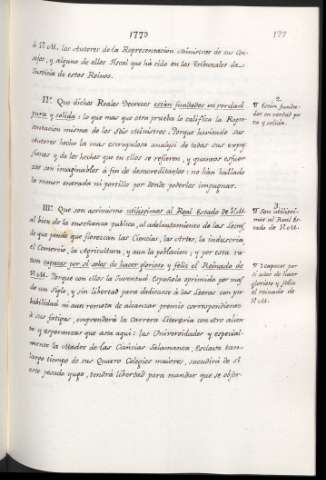 1773
177
à V. M. los Autores de la Representacion Ministros de sus Con-
sejos, y alguno de ellos Fiscal que ha sido en los Tribunales de
Justicia de estos Reinos.
II.º Que dichos Reales Decretos estan fundados en verdad
pura y solida: lo que mas que otra prueba lo califica la Repre-
sentacion misma de los siete Ministros. Porque haviendo sus
Autores hecho la mas escrupulosa analysi de todas sus expre-
siones y de los hechos que en ellos se refieren, y quantos esfuer-
zos son imaginables à fin de desacreditarlos: no han hallado
la menor entrada ni portillo por donde poderlos impugnar.
2.
¶ Estan funda-
dos en verdad pu-
ra y solida.
III.º Que son asimismo utilissimos al Real Estado de V. M.
al bien de la enseñanza publica, al adelantamiento de las Letras,
lo que pende que florezcan las Ciencias, las Artes, la industria,
el Comercio, la Agricultura, y aun la poblacion; y por esta ra-
zon capaces por sì solos de hacer glorioso y feliz el Reinado de
V. M. Porque con ellos la Juventud Española oprimida por mas
de un Siglo, y sin libertad para dedicarse à las Letras con pro-
babilidad ni aun remota de alcanzar premio correspondiente
à sus fatigas, emprenderà la Carrera Literaria con otro alien-
to y esperanzas que asta aqui: las Universidades y especial-
mente la Madre de las Ciencias Salamanca, Esclava tan-
largo tiempo de sus Quatro Colegios maiores, sacudirà de sì
este pesado yugo, tendrà libertad para mandar que se obser-
3.
¶ Son utilissi-
mos al Real Es-
tado de V. M.
¶ Y capaces por
sì solos de hacer
glorioso y feliz
el reinado de
V. M.